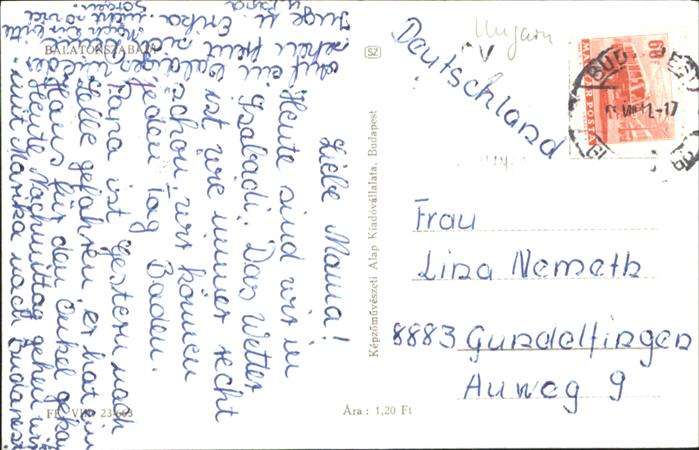 BALATONSZABADI
Liebe Mama!
Heute sind wir in
Szabadi. Das Wetter
ist wie immer recht
schön wir können
jeden Tag Baden.
Papa ist Gestern nach
Zelle gefahren er hat ein
Haus für den Onkel gekau
Heute Nachmittag gehen wir
mit Marika nach Budapest
auf ein
Erika.
FF. VIII. 23 663
Ára : 1,20 Ft
Képzőművészeti Alap Kiadóvállalata, Budapest
SZ
Ungarn
Deutschland
60f
MAGYAR POSTA
BUDAPEST
Frau
Lina Nemeth
8883 Gundelfingen
Auweg 9